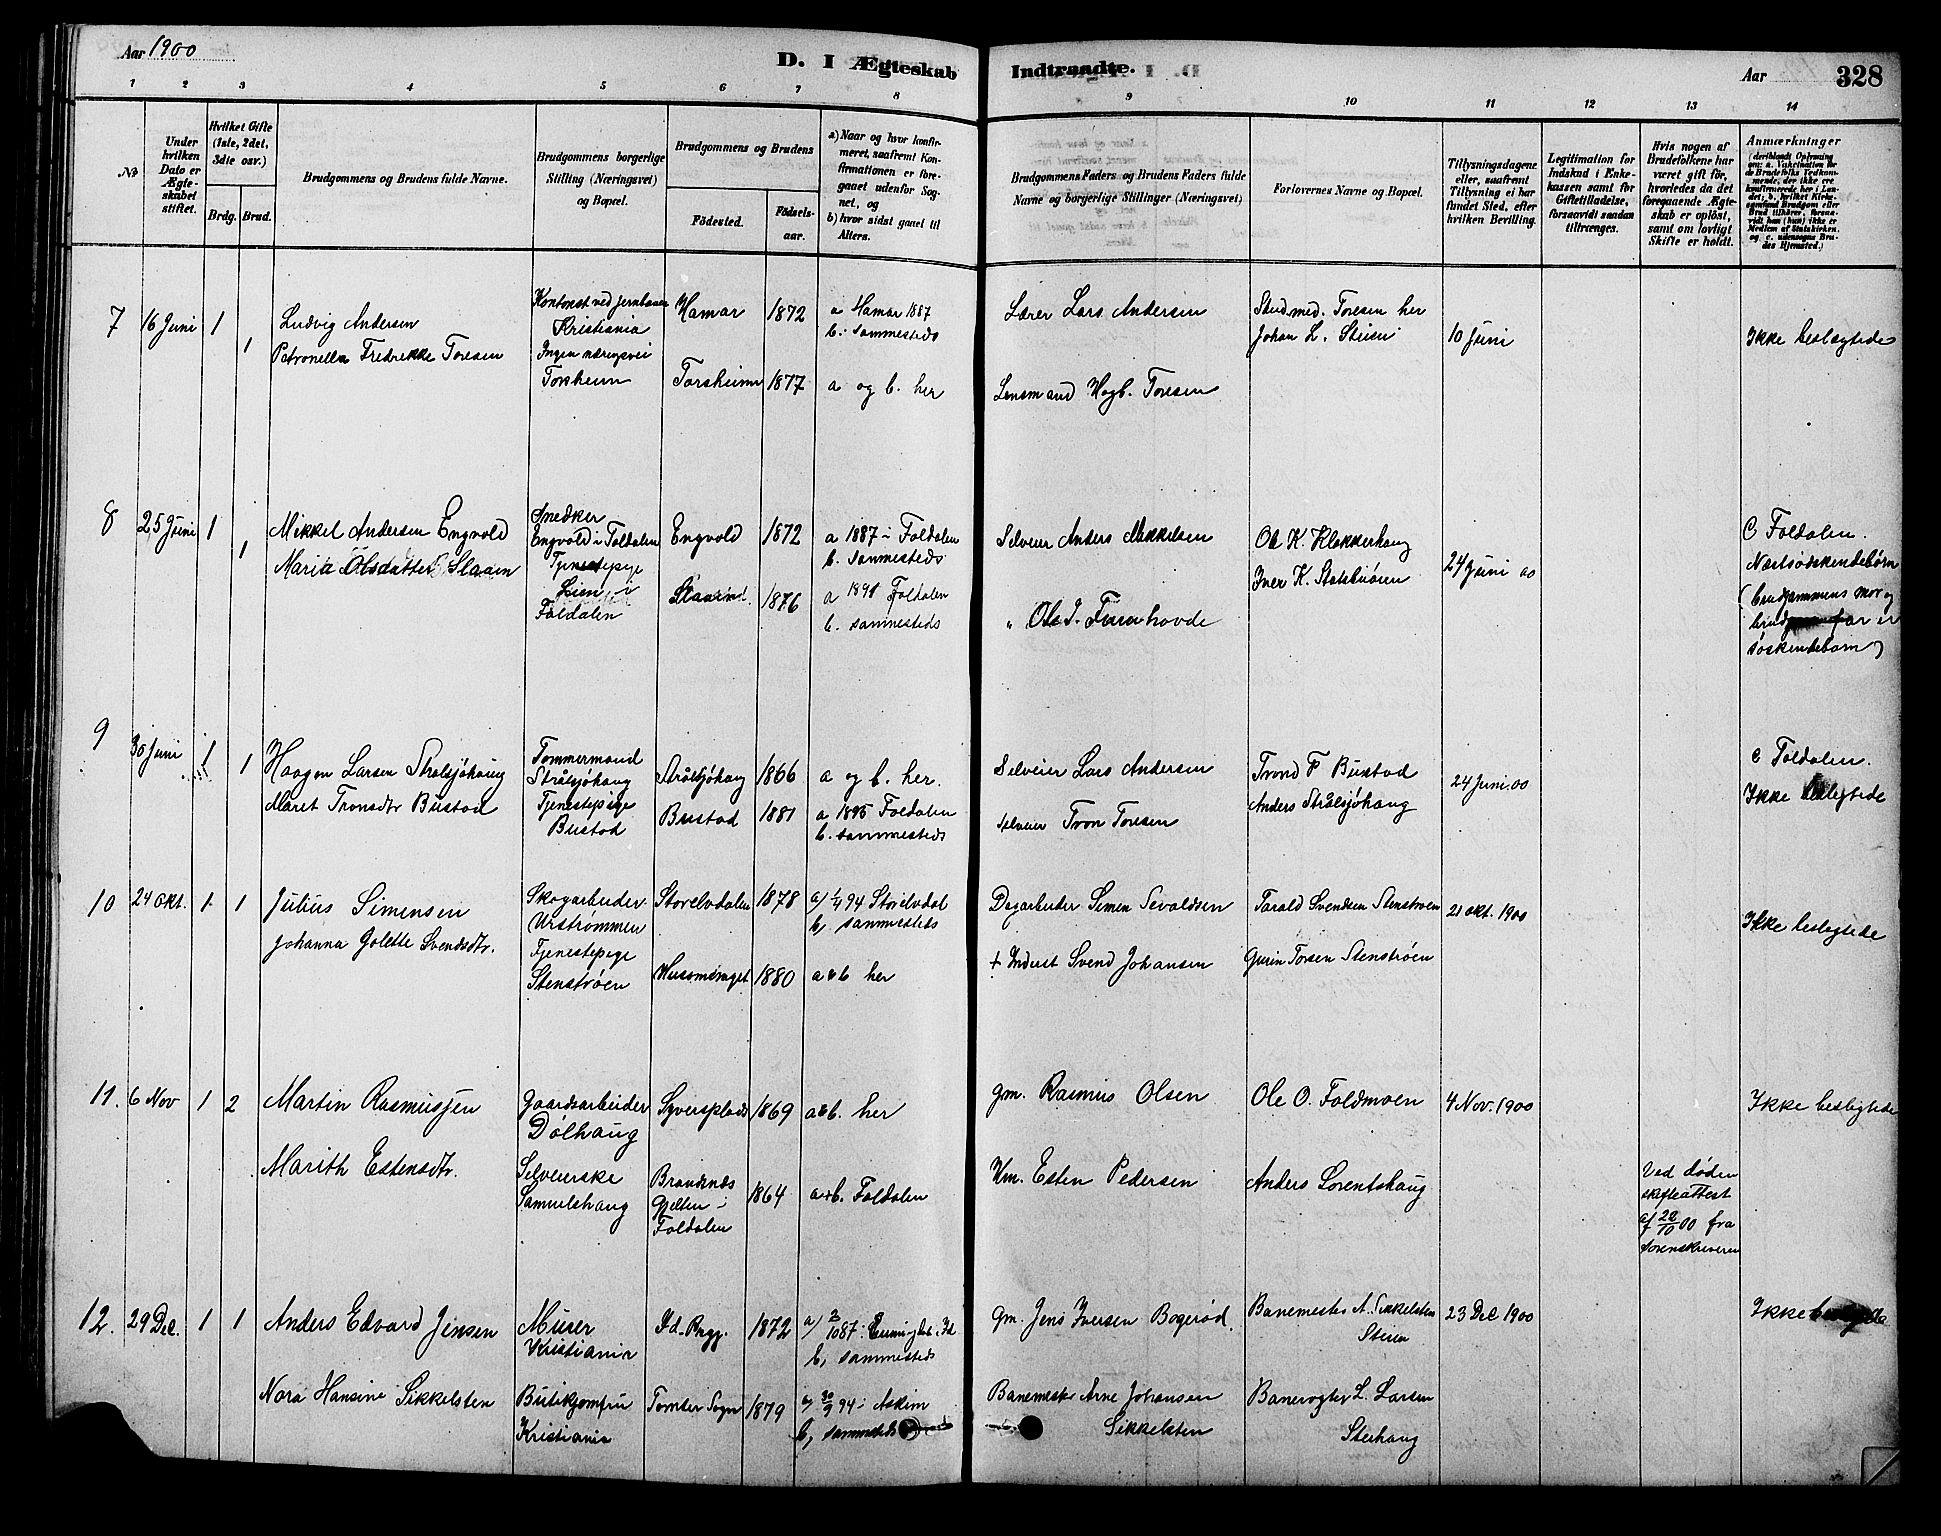 Aar 1900
D. I Ægteskab Indtraadte.
Aar
328
1 2 3 4 5 6 7 8 9 10 11 12 13 14
No
Under hvilken Dato er Ægteskabet stiftet.
Hvilket Gifte (1ste, 2det, 3die osv.)
Brdg. Brud.
Brudgommens og Brudens fulde Navne.
Brudgommens borgerlige Stilling (Næringsvei) og Bopæl.
Brudgommens og Brudens
Födested.
Födselsaar.
a) Naar og hvor konfirmeret, saafremt Konfirmationen er foregaaet udenfor Sognet, og
b) hvor sidst gaaet til Alters.
Brudgommens Faders og Brudens Faders fulde Navne og borgerlige Stillinger (Næringsvei)
Forlovernes Navne og Bopæl.
Tillysningsdagene eller, saafremt Tillysning ei har fundet Sted, efter hvilken Bevilling.
Legitimation for Indskud i Enkekassen samt for Giftetilladelse, forsaavidt saadan tiltrænges.
Hvis nogen af Brudefolkene har været gift för, hvorledes da det foregaaende Ægteskab er oplöst, samt om lovligt Skifte er holdt.
Anmærkninger
7 16 Juni 1 1
Ludvig Andersen
Petronella Fredrekke Toresen
Kontorist ved jernbanen
Kristiania
Ingen næringsvei
Torsheim
Hamar 1872
Torsheim 1877
a Hamar 1887
b. sammesteds
a og b. her
Lærer Lars Andersen
Lensmand Hagb. Toresen
Stud med. Toresen her
Johan L. Steien
10 Juni
Ikke beslægtede
8 25 Juni 1 1
Mikkel Andersen Engvold
Maria Olsdatter Slaaen
Snedker
Engvold i Foldalen
Tjenestepige
Lien i
Foldalen
Engvold 1872
1876
a 1887 i Foldalen
b. sammesteds
a 1891 Foldalen
b. sammesteds
Selveier Anders Mikkelsen
" Ole J. Furuhovde
Ole K. Klokkerhaug
Iver K. Stolsbuöien
24 Juni 00
C Foldalen.
Næstsødskendebørn
(brudgommens mor og
brudens far er
søskendebørn)
9 30 Juni 1 1
Haagen Larsen Strålsjøhaug
Maret Tronsdtr Bustad
Tømmermand
Strålsjøhaug
Tjenestepige
Bustad
Strålsjøhaug 1866
Bustad 1881
a og b. her.
a 1895 Foldalen
b. sammesteds
Selveier Lars Andersen
selveier Tron Toresen
Trond P Bustad
Anders Strålsjøhaug
24 Juni 00
C Foldalen.
Ikke beslegtede
10 24 Okt. 1 1
Julius Simensen
Johanna Golette Svendsdtr.
Skogarbeider
Urstrømmen
Tjenestepige
Stenstrøen
Storelvdalen 1878
Husomsraget 1880
a) 1/4 94 Storelvdal
b) sammesteds
a & b her
Dagarbeider Simen Sevaldsen
+ Inderst Svend Johansen
Tarald Svendsen Stenstrøen
Gurin Torsen Stenstrøen
21 Okt. 1900
Ikke beslegtede
11. 6 Nov 1 2
Martin Rasmussen
Marith Estensdtr.
Gaardsarbeider
Dølhaug
Selveierske
Samuelshaug
Syversplads 1869
Brandsnæs
Gjelten i
Foldalen 1864
a & b. her
a & b. Foldalen
gm. Rasmus Olsen
Hm. Esten Pedersen
Ole O. Foldmoen
Anders Lorentshaug
4 Nov. 1900
Ved døden
skifteattest
af 22/10 00 fra
Sorenskriveren
Ikke beslegtede
12. 29 Dec. 1 1
Anders Edvard Jensen
Nora Hansine Sikkelsten
Murer
Kristiania
Butikjomfru
Kristiania
Id. Rygg. 1872
Tomter Sogn 1879
a) 2/10 87 i Id
b) sammesteds
a) 30/9 94 i Askim
b) sammesteds
gm. Jens Iversen Bogerød.
Banemester Arne Johansen
Sikkelsten
Banemester A. Sikkelsten
Steien
Banevogter L. Larsen
Steihaug
23 Dec 1900
Ikke